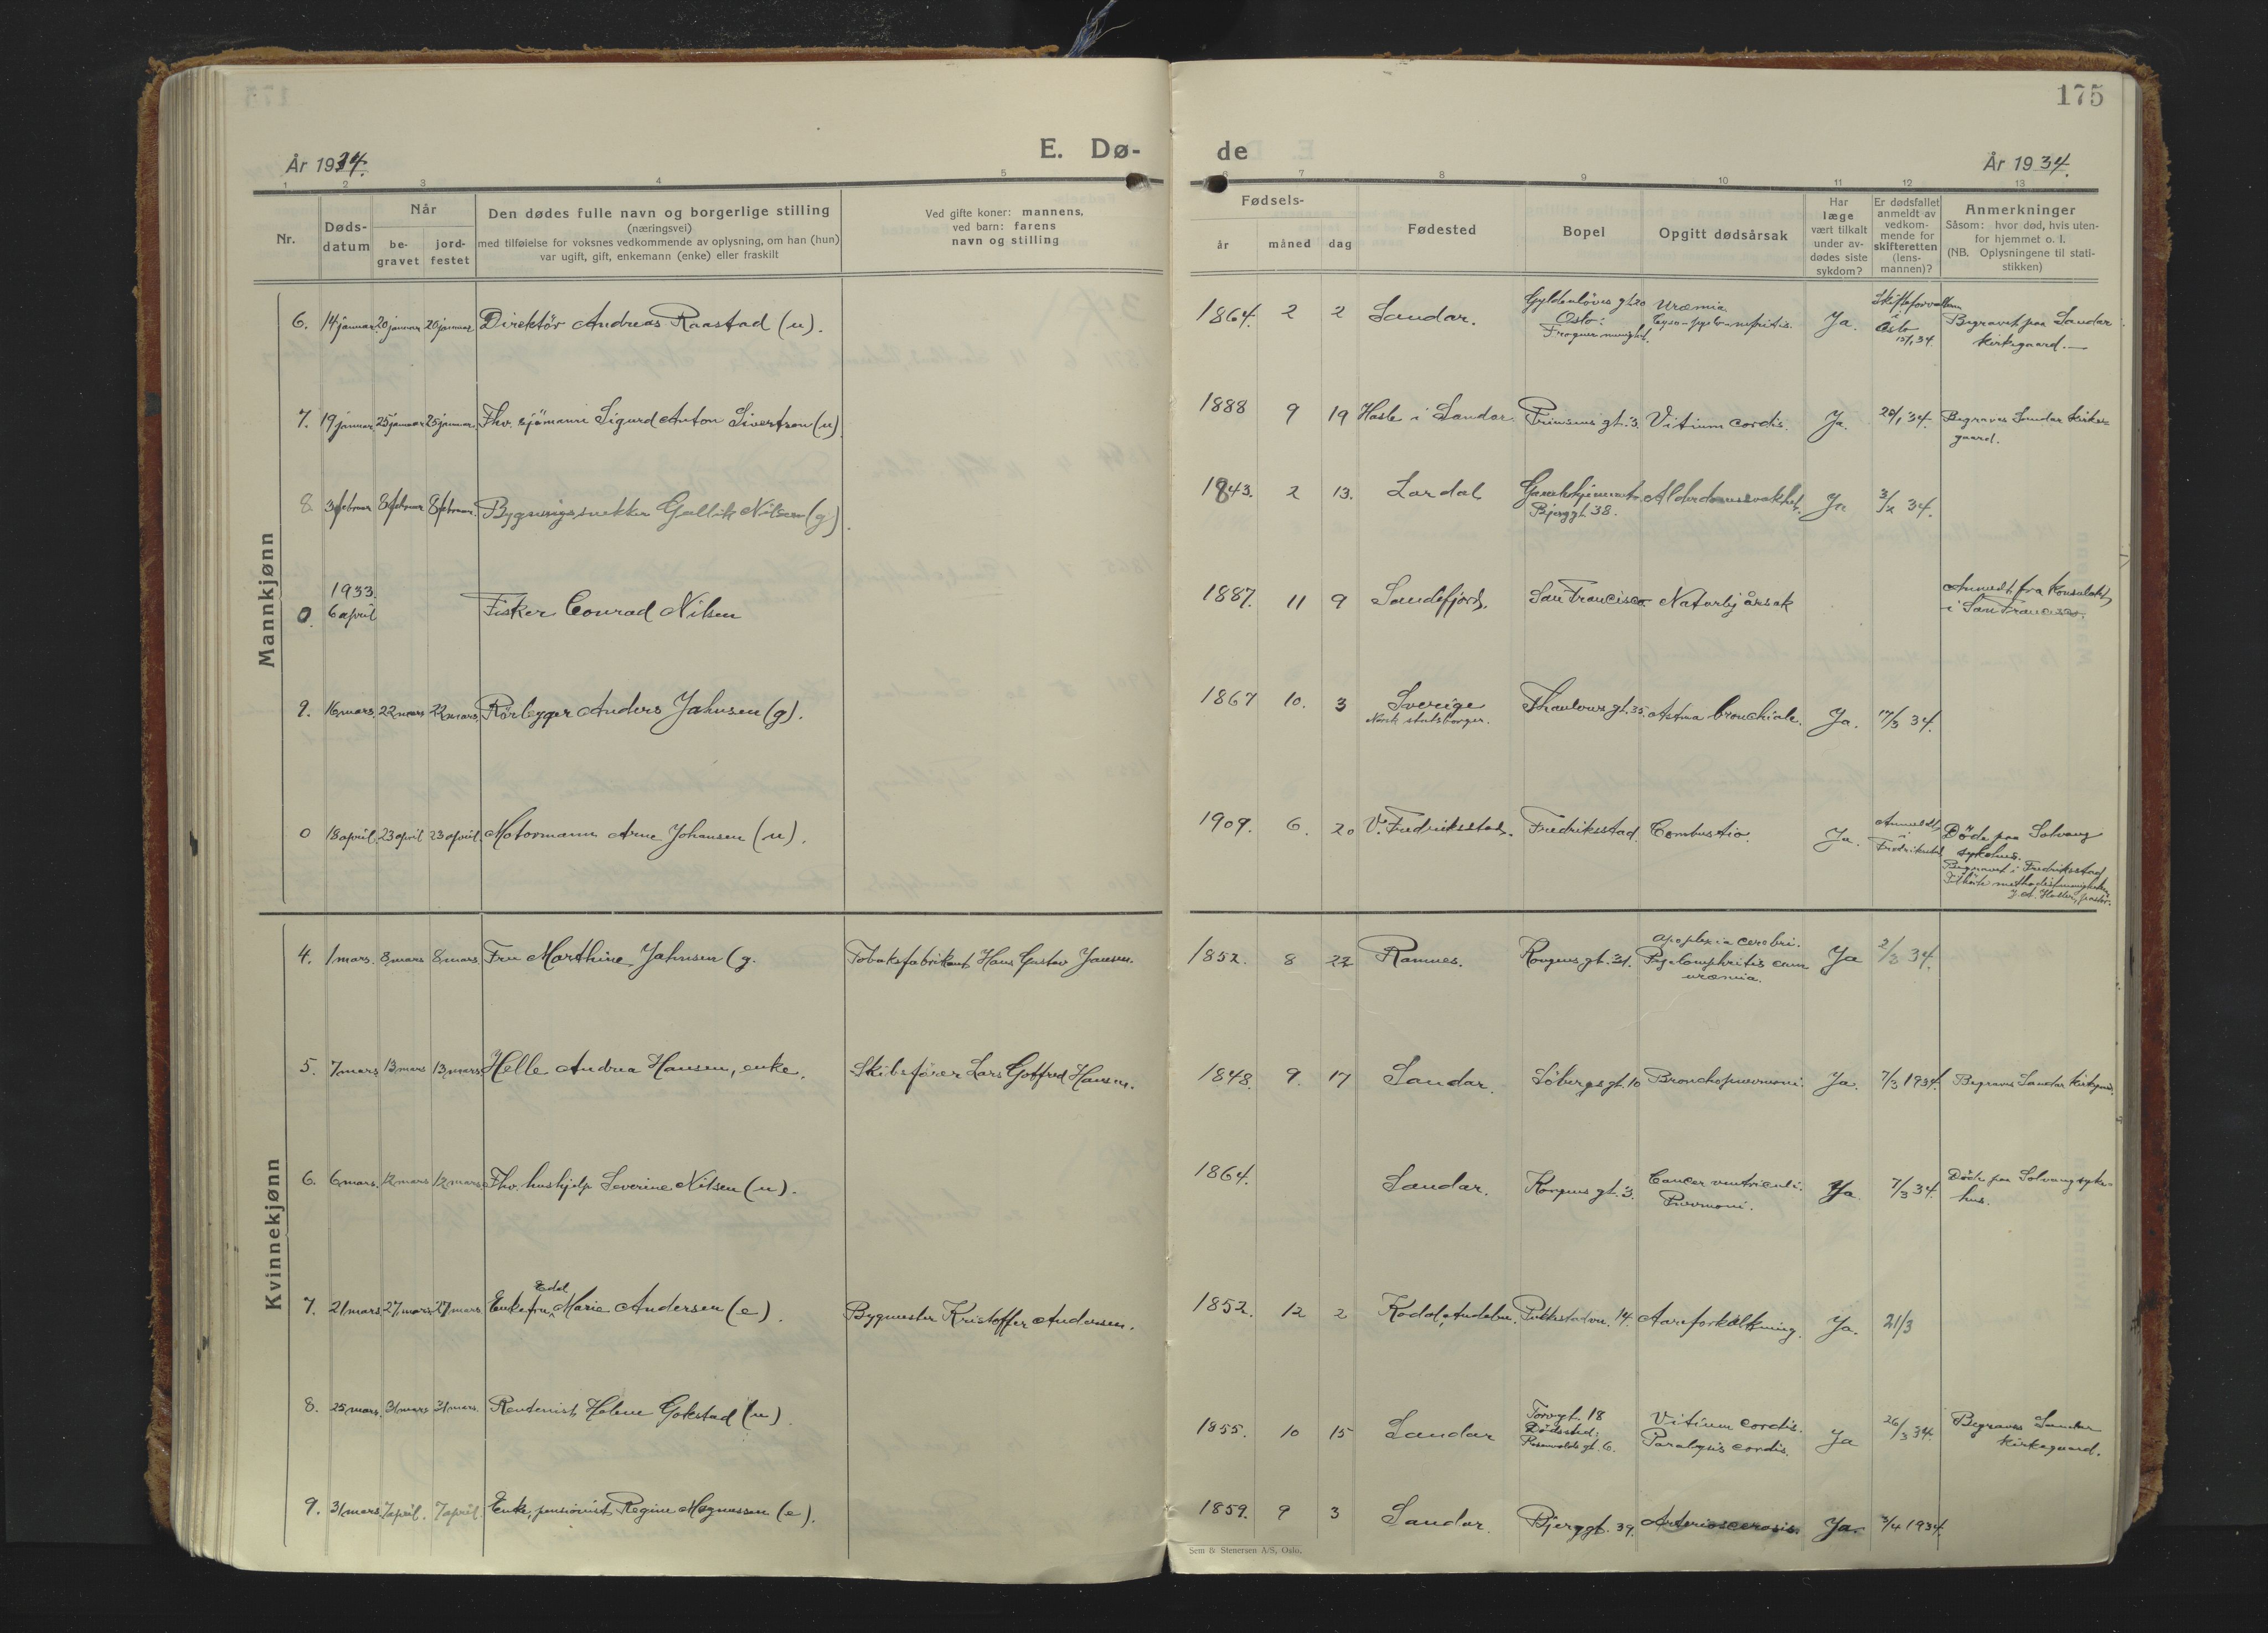 175
E. Dø-
de
År 1934.
År 1934.
1 2 3 4 5
6 7 8 9 10 11 12 13
Nr.
Døds-
datum
Når
be-
gravet
jord-
festet
Den dødes fulle navn og borgerlige stilling
(næringsvei)
med tilføielse for voksnes vedkommende av oplysning, om han (hun)
var ugift, gift, enkemann (enke) eller fraskilt
Ved gifte koner: mannens,
ved barn: farens
navn og stilling
Fødsels-
år
måned
dag
Fødested
Bopel
Opgitt dødsårsak
Har
læge
vært tilkalt
under av-
dødes siste
sykdom?
Er dødsfallet
anmeldt av
vedkom-
mende for
skifteretten
(lens-
mannen)?
Anmerkninger
Såsom: hvor død, hvis uten-
for hjemmet o. l.
(NB. Oplysningene til stati-
stikken)
Mannkjønn
6. 14 januar 20 januar 20 januar Direktör Andreas Raastad (u).
1864. 2 2 Sandar.
Gyldenlöves gt. 20
Oslo:
Frogner menighet.
Uræmia
Ja.
Skifteforvalteren
i
Oslo
15/1 34.
Begravet paa Sandar
kirkegaard. —
7. 19 januar 25 januar 25 januar Fhv. sjömann Sigurd Anton Sivertsen (u)
1888 9 19 Hasle i Sandar Prinsens gt. 3. Vitium cordis. Ja. 20/1 34.
Begraves Sandar kirke=
gaard.
8. 3 februar 8 februar 8 februar. Bygningssnekker Gullik Nilsen (g).
1843. 2 13. Lardal
Gamlehjemmet.
Bjerggt. 38.
Alderdomssvakhet. Ja 3/2 34.
0. 1933.
6 april Fisker Conrad Nilsen
1887. 11 9 Sandefjord. San Francisco Naturlig årsak
Anmeldt fra Konsulatet
i San Francisco.
9. 16 mars. 22 mars 22 mars. Rörlegger Anders Jahnsen (g).
1867 10. 3 Sverige
Norsk statsborger.
Thaulows gt. 35. Astma bronchiale. Ja. 17/3 34.
0 18 april. 23 april 23 april. Motormann Arne Johansen (u).
1909. 6. 20 V. Fredriksstad. Fredriksstad. Combustio. Ja.
Anmeldt
i
Fredrikstad
Döde paa Solvang
sykehus.
Begravet i Fredriksstad
Tilhörte methodistmenigheten
Kvinnekjønn
4. 1 mars. 8 mars 8 mars. Fru Marthine Jahnsen (g.
Tobaksfabrikant Hans Gustav Jansen.
1852. 8 22 Ramnes. Kongens gt. 31.
Apoplexia cerebri.
Pyelonephritis cum
uræmia.
Ja 2/3 34.
5. 7 mars 13 mars 13 mars Helle Andrea Hansen, enke.
Skibsförer Lars Gotfred Hansen.
1848. 9. 17 Sandar. Söbergs gt. 10 Bronchopnevmoni. Ja. 7/3 1934. Begraves Sandar kirkegaard.
6. 6 mars. 12 mars 12 mars. Fhv. hushjelp Severine Nilsen (u).
1864. Sandar. Kongens gt. 3.
Cancer ventriculi.
Pnevmoni.
Ja. 7/3 34.
Döde paa Solvang syke=
hus.
7. 21 mars. 27 mars 27 mars. Enkefru Edel Marie Andersen (e).
Bygmester Kristoffer Andersen.
1852. 12 2 Kodal, Andebu. Pukkestadvn. 14. Aareforkalkning. Ja. 21/3
8. 25 mars. 31 mars 31 mars. Rentenist Helene Gokstad (u).
1855. 10 15 Sandar
Torvgt. 18
Dödssted:
Rosenvolds gt. 6.
Vitium cordis.
Paralysis cordis.
Ja 26/3 34.
Begraves Sandar
kirkegaard.
9. 31 mars. 7 april. 7 april. Enke, pensionist Regine Magnussen (e).
1859. 9 3 Sandar. Bjerggt. 39. Arteriosclerosis. Ja. 3/4 1934.
Sem & Stenersen A/S, Oslo.